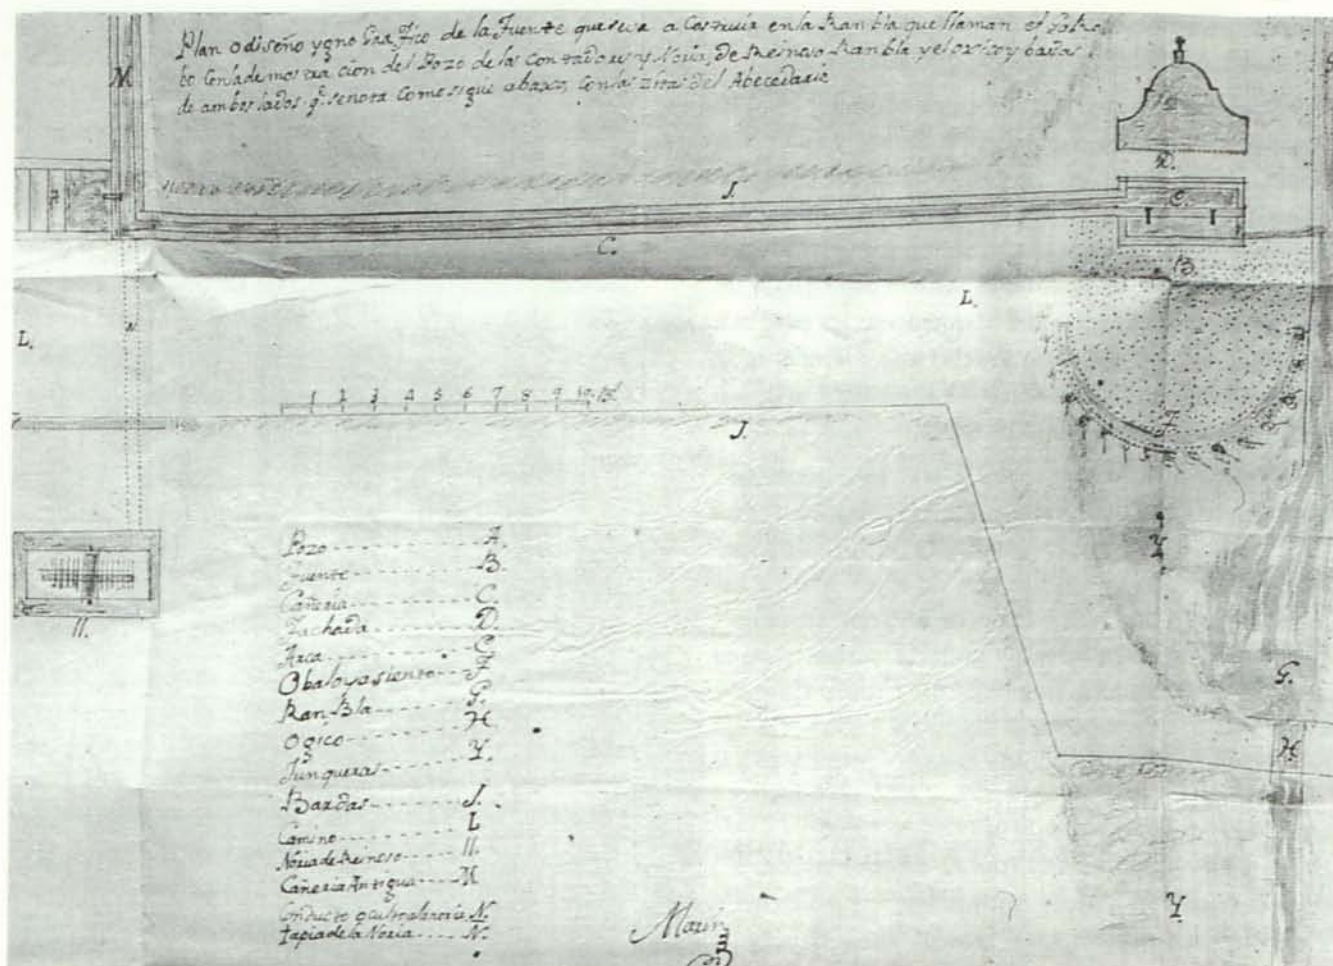 Plan o diseño ygno Gra fico de la Fuente que seva a Costruir en la Ran bla que llaman el
bo Con la demostra cion del Pozo de las Contadores y Noria, de Reinoso Ran bla y el oxico y baños
de ambos lados q.e se nota Como sigue abaxo, Con las Zitas del Abecedario
M
D.
J.
C.
B.
L.
L.
1 2 3 4 5 6 7 8 9 10
J.
F
Y
Pozo A.
Fuente B.
Cañeria C.
Fachada D.
Arca
Obalo y asiento F
Ran Bla G.
Ogico H
Junqueras Y.
Bardas J.
Camino L
Noria de Reinoso ll.
Cañeria Antigua M
Conducto oculto a la noria N.
tapia de la Noria N.
ll.
G.
H
Y.
Marin